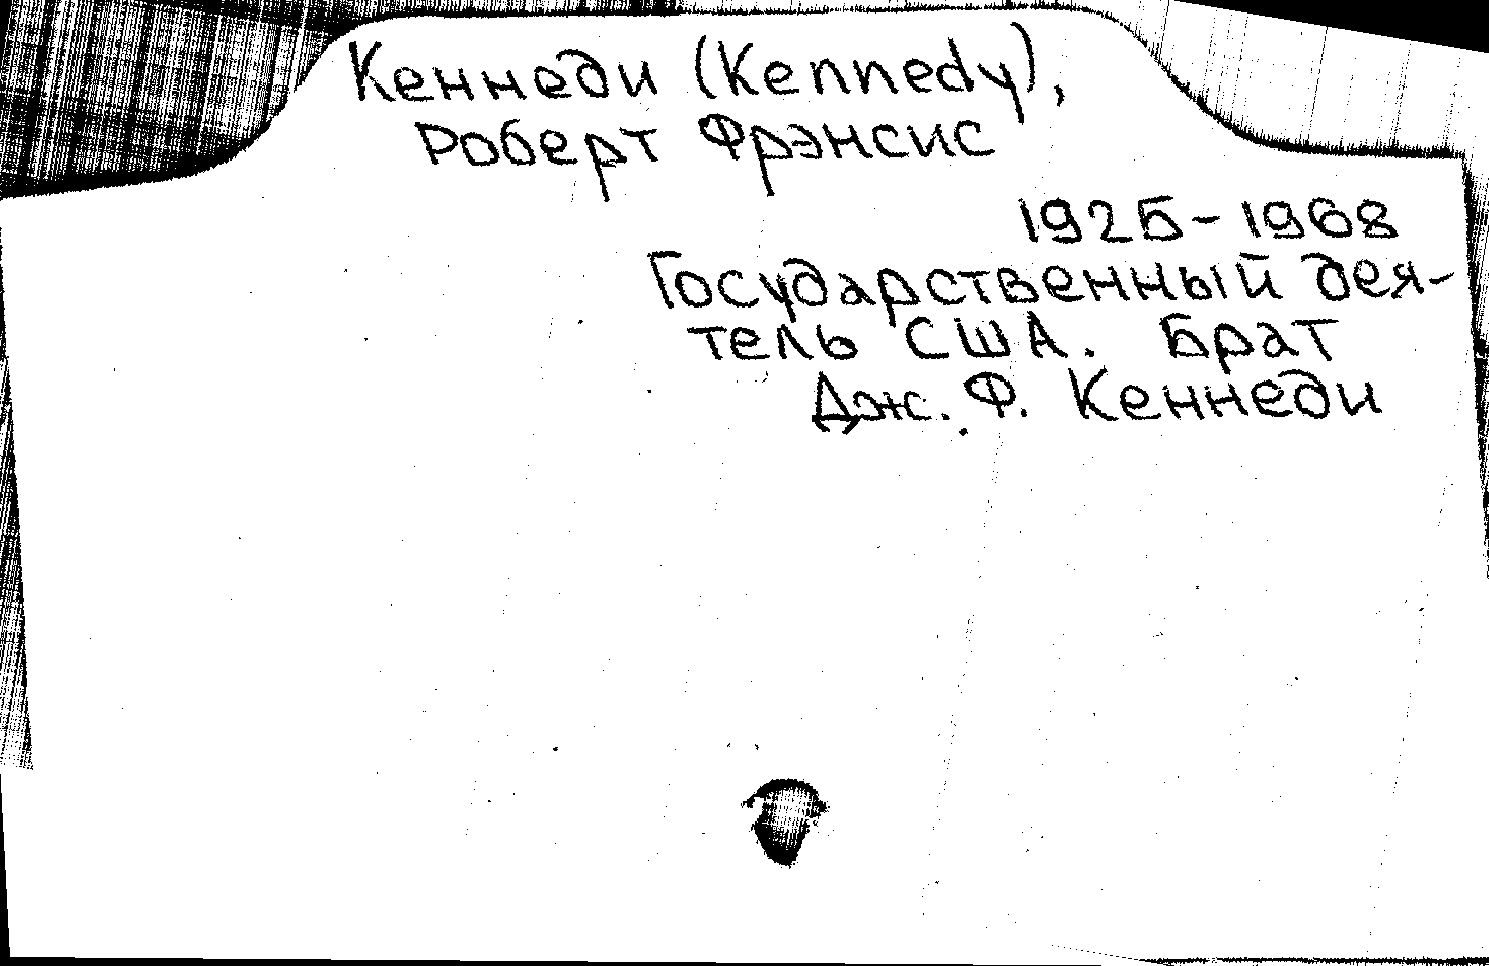 Кеннеди (Kennedy),
Роберт Фрэнсис
1925-1968
Государственный дея-
тель США. Брат
Дж. Ф. Кеннеди